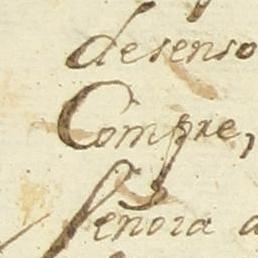 desenso
Compre,
Senora a